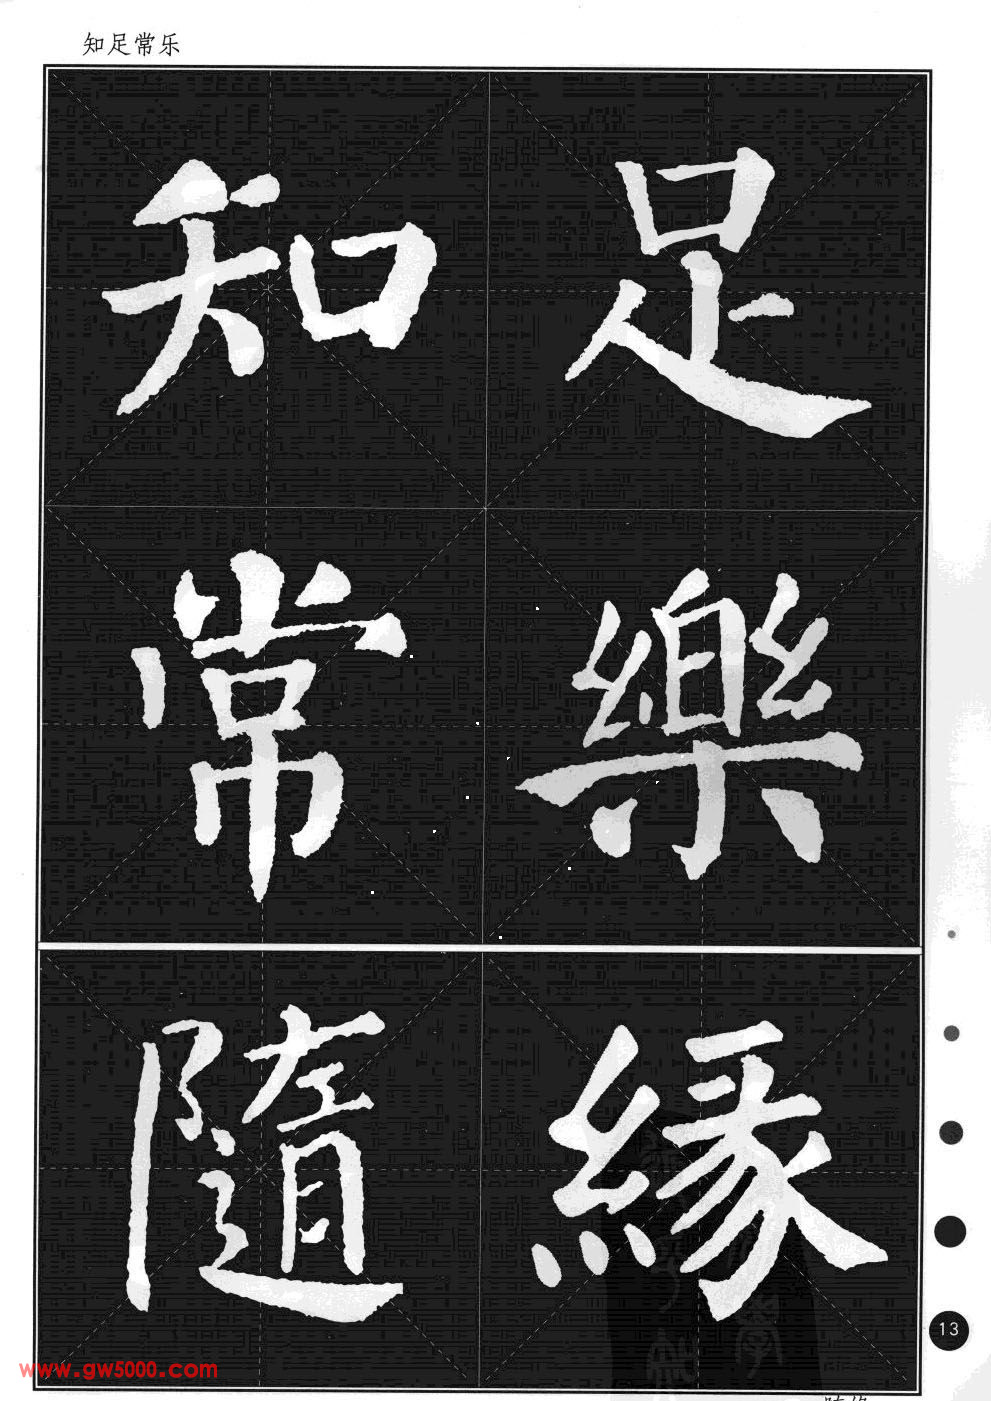 知足常乐
知足
常樂
隨緣
13
www.gw5000.com